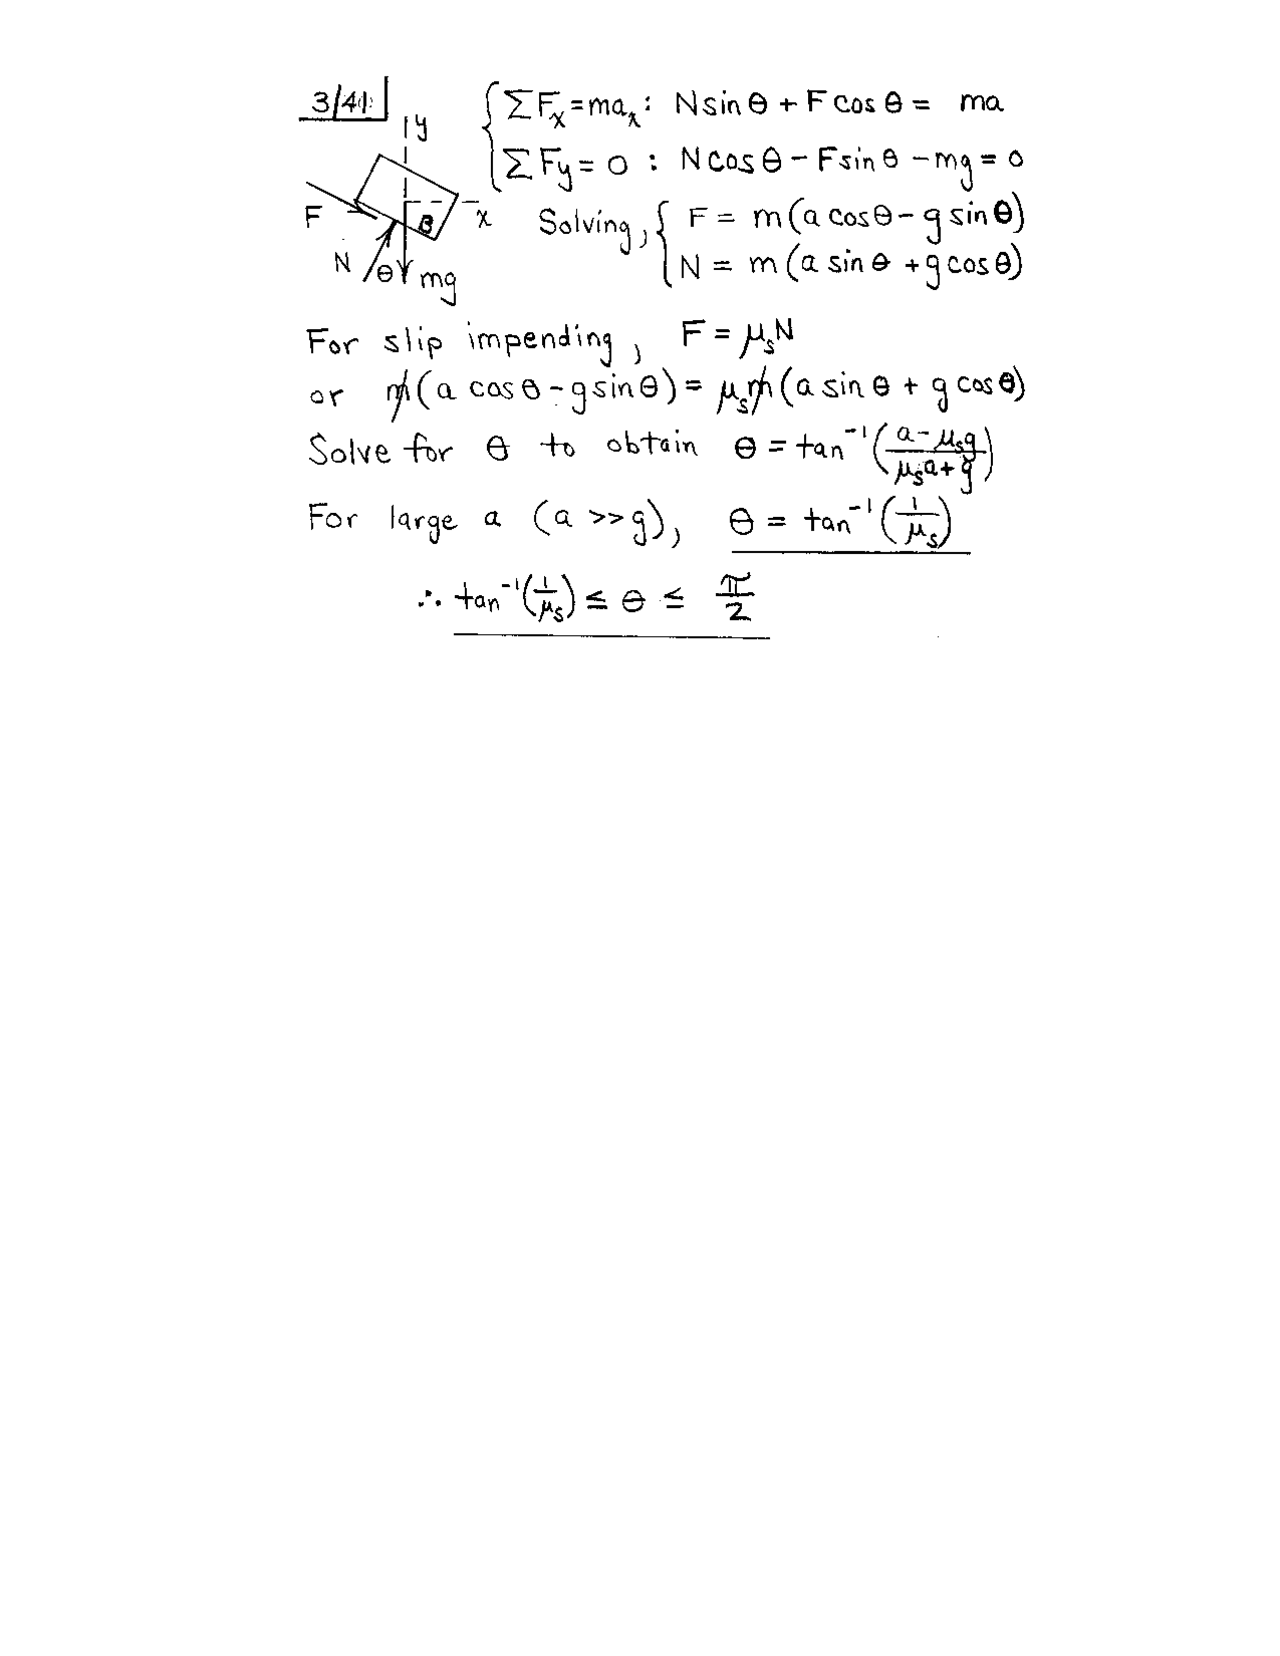 3/41
ΣFx = max : N sin θ + F cos θ = ma
ΣFy = 0 : N cos θ - F sin θ - mg = 0
y
x
B
F
N
θ
mg
Solving, F = m(a cos θ - g sin θ)
N = m(a sin θ + g cos θ)
For slip impending, F = μsN
or m(a cos θ - g sin θ) = μsm(a sin θ + g cos θ)
Solve for θ to obtain θ = tan⁻¹((a - μsg)/(μsa + g))
For large a (a >> g), θ = tan⁻¹(1/μs)
∴ tan⁻¹(1/μs) ≤ θ ≤ π/2